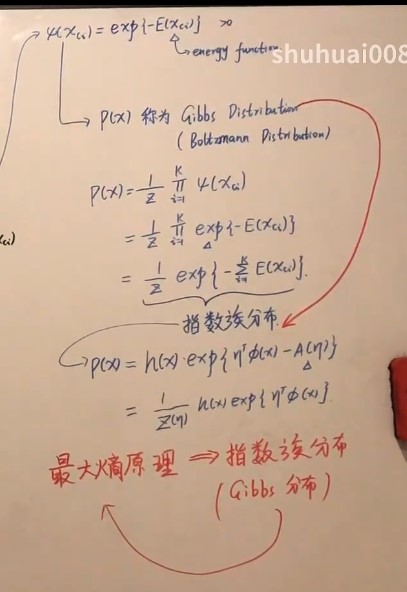 ψ(x_{ci}) = exp{-E(x_{ci})} >0
energy function
shuhuai008
P(x) 称为 Gibbs Distribution
(Boltzmann Distribution)
P(x) = 1/Z ∏_{i=1}^{K} ψ(x_{ci})
= 1/Z ∏_{i=1}^{K} exp{-E(x_{ci})}
= 1/Z exp{-∑_{i=1}^{K} E(x_{ci})}.
指数族分布.
P(x) = h(x)·exp{η^T φ(x) - A(η)}
= 1/Z(η) h(x) exp{η^T φ(x)}.
最大熵原理 ⇒ 指数族分布
(Gibbs 分布)